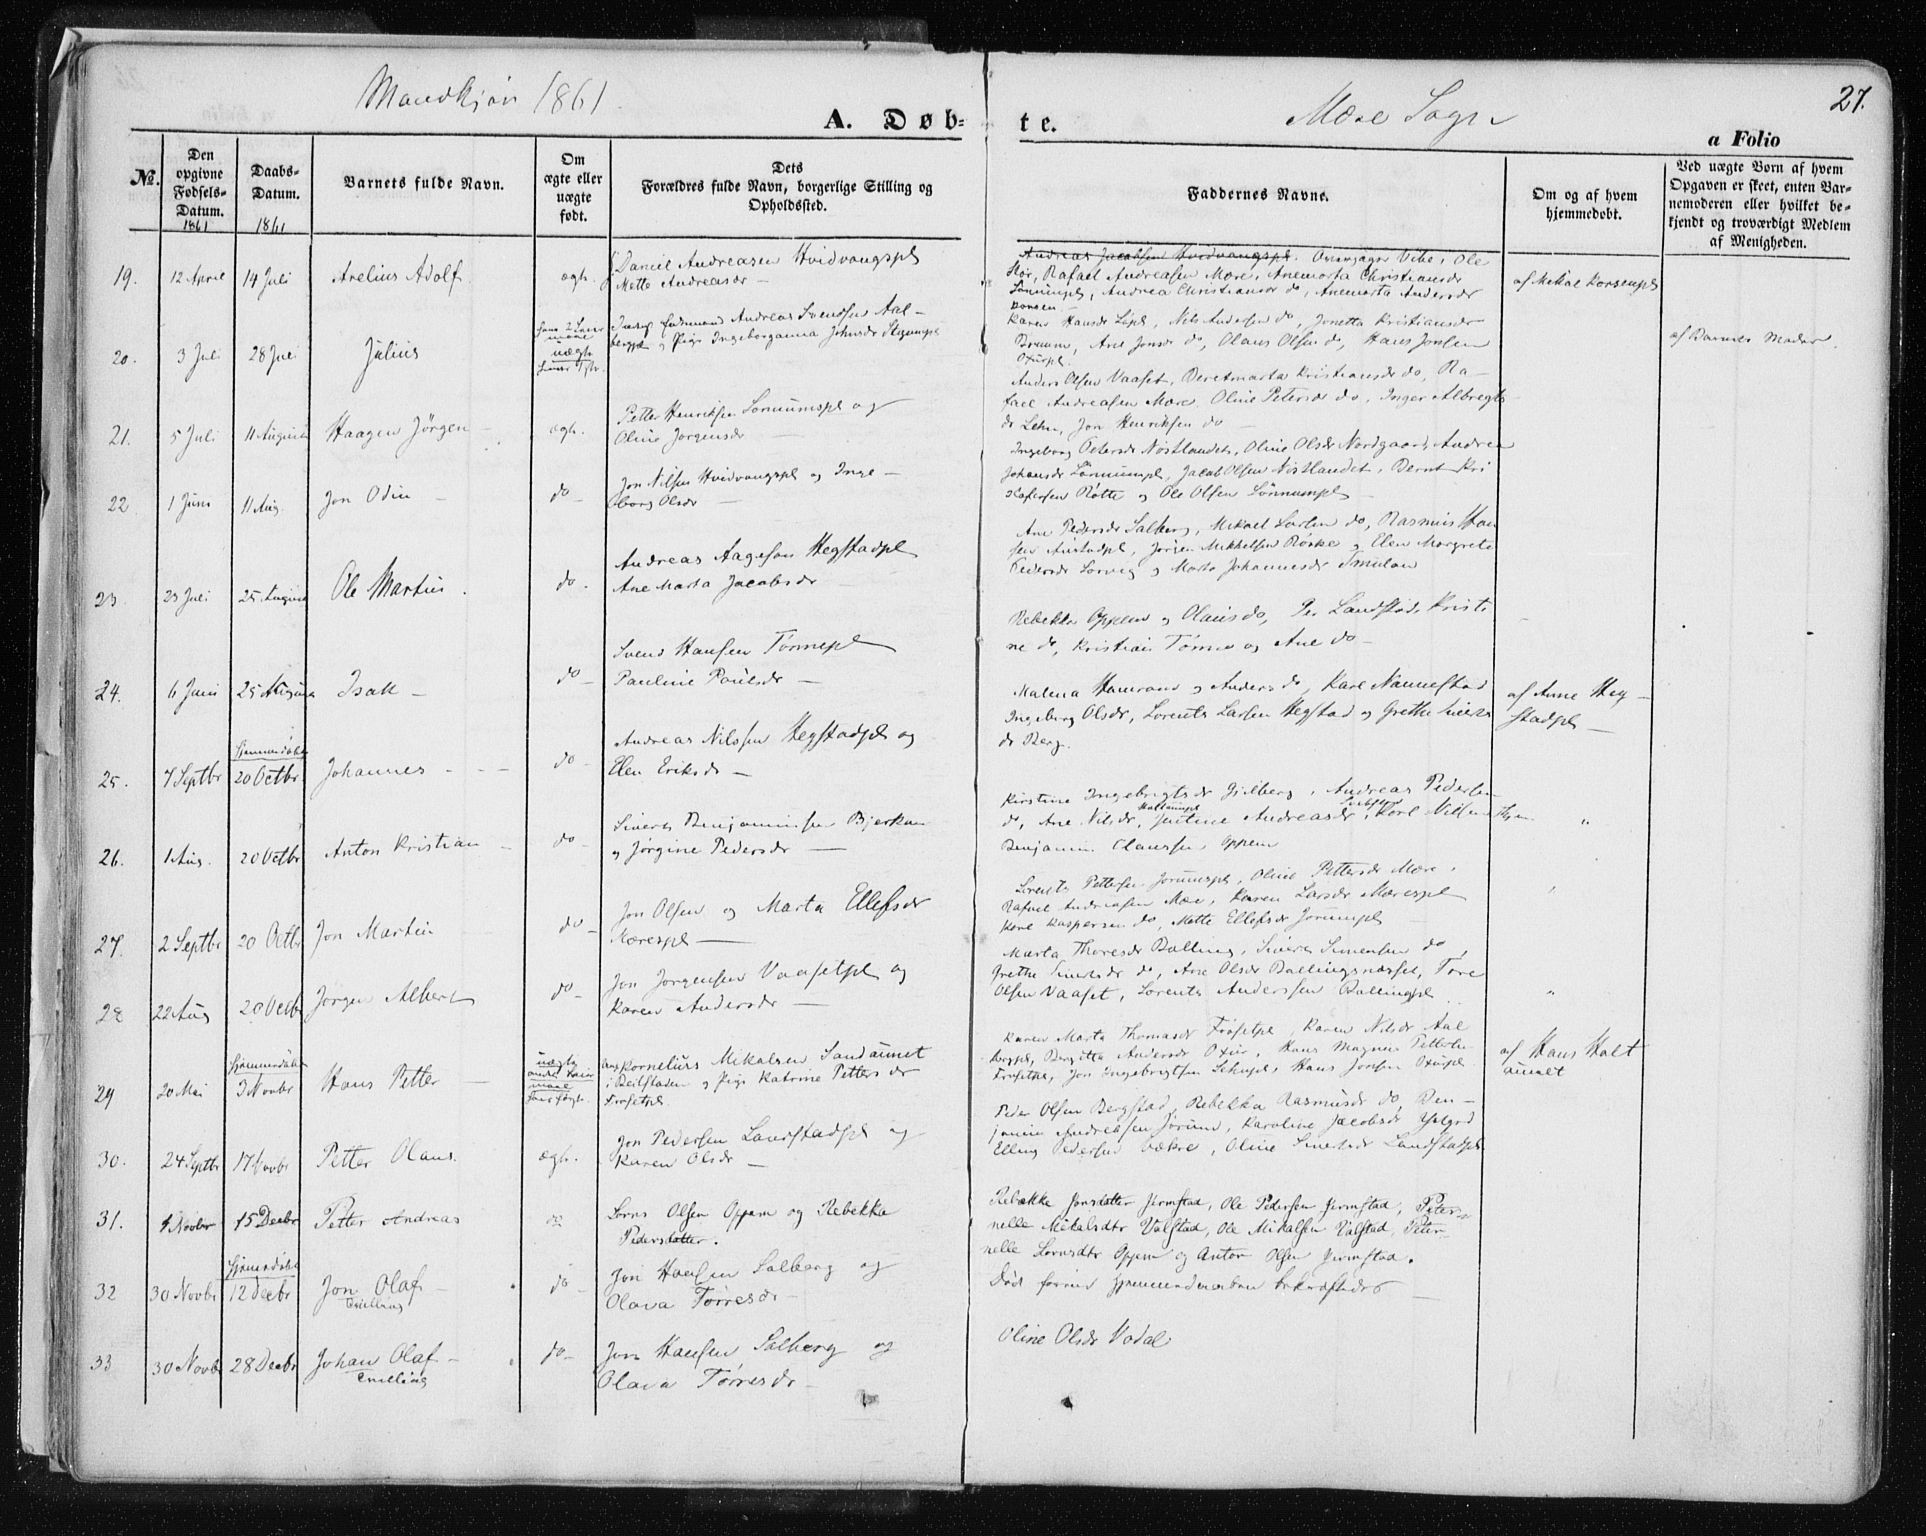 Mandkjøn 1861.
A. Døb- te.
Mære Sogn
27.
a Folio
No.
Den opgivne Fødsels-Datum. 1861
Daabs-Datum. 1861
Barnets fulde Navn.
Om ægte eller uægte født.
Dets Forældres fulde Navn, borgerlige Stilling og Opholdssted.
Faddernes Navne.
Om og af hvem hjemmedøbt.
Ved uægte Børn af hvem Opgaven er skeet, enten Barnemoderen eller hvilket bekjendt og troværdigt Medlem af Menigheden.
19. 12 April 14 Juli Arelius Adolf ægte. Daniel Andreasen Hvidvangspl
Mette Andreasdr —
Andreas Jacobsen Hvidvangspl. Vibe, Ole
Rafael Andreasen Mære, Anemarta Christiansdr
Andrea Christiansdr do, Anemarta Andersdr
af Mikal Korsenpl
20. 3 Juli 28 Juli Julius uægte
Andreas Svendsen Aal-
bergpl og Pige Ingeborganna Johnsdr
Karen Hansdr, Nils Andersen do, Jonetta Kristiansdr
Ane Jonsdr do, Olaus Olsen do, Hans Jonsen
af Barnets Moder.
21. 5 Juli 11 August Haagen Jörgen — ægte. Petter Henriksen Lønnumspl og
Oline Jorgensdr —
Anders Olsen Vaaset, Beretmarta Kristiansdr do, Ra-
fael Andreasen Mære, Oline Petersdr do, Inger Albregts
dr Lehn, Jon Henriksen do —
22 1 Juni 11 Aug. Jon Odin — do — Jon Nilsen Hvidvangspl og Inge —
borg Olsdr —
Ingeborg Petersdr Nöstlandet, Oline Olsdr Nordgaard, Andrea
Johansdr Lönnumpl, Jacob Olsen Nöstlandet, Bernt Kri
Røtte og Ole Olsen Lønnumpl —
23. 23 Juli 25 August Ole Martin. do — Andreas Aagesen Hegstadpl
Ane Marta Jacobsdr —
Ane Pedersdr Salberg, Mikael Larsen do, Rasmus Han
sen Austadpl, Jörgen Mikkelsen Röske og Elen Margrete
Pedersdr Lorvig og Marta Johannesdr Smulan
24. 6 Juni 25 August Isak — do — Svend Hansen Tørnepl
Pauline Poulsdr —
Rebekka Oppem og Olaus do, Per Landstad, Kristi
ne do, Kristian Tørne og Ane do —
25. 7 Septbr Hjemmedöbt 20 Octbr Johannes — do — Andreas Nilssen Hegstadpl og
Elen Eriksdr —
Malena Hamrann og Anders do, Karl Nannestad
Ingeborg Olsdr, Lorents Larsen Hegstad og Grethe
dr Berg.
af Anne Heg —
stadpl —
26. 1 Aug. 20 Octbr Anton Kristian — do — Sivert Benjaminsen Bjerkan
og Jørgine Pedersdr —
Kirstine Ingebrigtsdr Gjelberg, Andreas Pedersen
do, Ane Nilsdr, Justine Andreasdr, Karl Nilsen
Benjamin Olaussen Oppem
"
27. 2 Septbr 20 Octbr Jon Martin do — Jon Olsen og Marta Ellefsdr
Mærespl —
Lorents Pettersen Jorumspl, Oline Pettersdr Mære,
Rafael Andreasen Mære, Karen Larsdr Mærespl
Karl Kaspersen do, Mette Ellefsdr Jorumpl —
28 22 Aug 20 Octbr Jörgen Albert do — Jon Jorgensen Vaasetpl og
Karen Andersdr —
Marta Thoresdr Balling, Sivert Simensen do,
Grethe do, Ane Olsdr Ballingsnæsset, Tore
Olsen Vaaset, Lorents Anderssen Ballingpl
"
29 20 Mai Hjemmedöbt 3 Novbr Hans Petter — uægte
Kornelius Mikalsen Sandaunet
i Beitstaden og Pige Katrine Petters dr
Frøsetpl
Karen Marta Thomasdr Frøsetpl, Karen Nilsdr Aal
bergpl, Bergitta Andersdr Oxur, Hans Magnus Petterse
Frøsetpl, Jon Ingebrigtsen, Hans Jonsen Oxurpl
af Hans Halt
aunet
30. 24 Septbr 17 Novbr Petter Olaus. ægte. Jon Pedersen Landstadpl og
Karen Olsdr —
Peder Olsen Bergstad, Rebekka Rasmusdr do, Ben —
jamin Andreasen Jörum, Karoline Jacobsdr
Elling Pedersen, Oline Landstadpl
31. 1 Novbr 15 Decbr Petter Andreas do Lorns Olsen Oppem og Rebekka
Pedersdatter.
Rebekke Jonsdatter Jermstad, Ole Pedersen Jermstad, Peter-
nelle Mikalsdtr Valstad, Ole Mikalsen Valstad, Peter-
nelle Lornsdtr Oppem og Anton Olsen Jermstad.
32 30 Novbr Hjemmedöbt 12 Decbr Jon Olaf — Tvilling do — Jon Hansen Salberg og
Olava Törresdr —
Død forind hjemmedaaben bekræftedes —
33 30 Novbr 28 Decbr Johan Olaf — Tvilling do — Jon Hansen Salberg og
Olava Törresdr —
Oline Olsdr Vodal